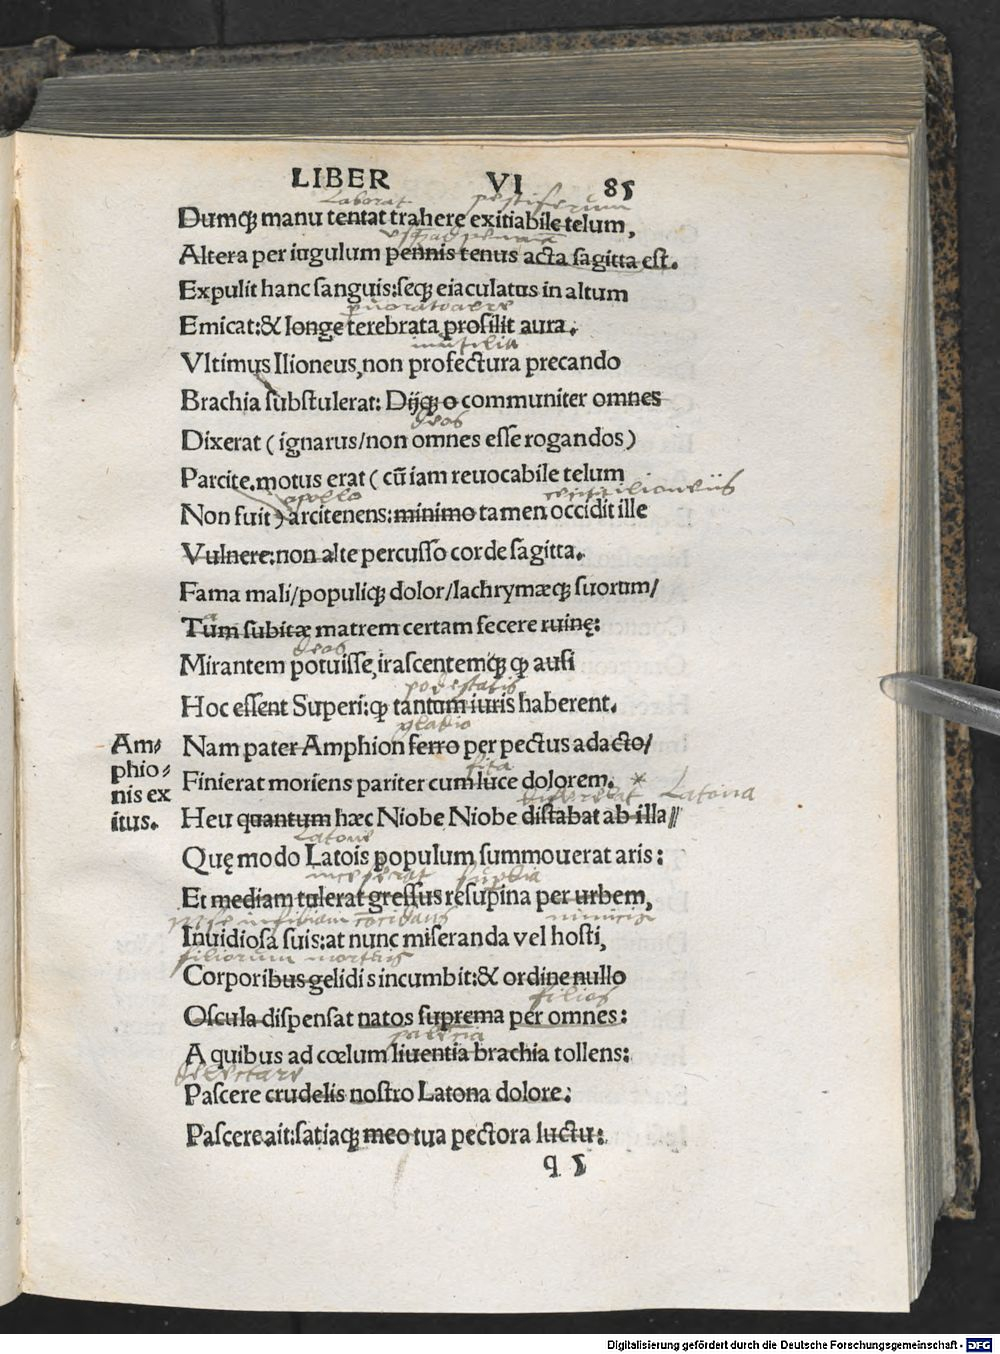 LIBER VI 85
Laborat pestiferum
Dumqꝫ manu tentat trahere exitiabile telum,
Altera per iugulum pennis tenus acta sagitta est.
Expulit hanc sanguis: seqꝫ eiaculatus in altum
Emicat: & longe terebrata prosilit aura.
inutilia
Vltimus Ilioneus, non profectura precando
Brachia substulerat: Dijqꝫ o communiter omnes
deos
Dixerat ( ignarus/non omnes esse rogandos )
Parcite, motus erat ( cū iam reuocabile telum
apollo
Non fuit ) arcitenens: minimo tamen occidit ille
Vulnere: non alte percusso corde sagitta.
Fama mali/populiqꝫ dolor/lachrymæqꝫ suorum/
Tum subitæ matrem certam fecere ruinę:
deos
Mirantem potuisse, irascentemqꝫ ꝙ ausi
podestatis
Hoc essent Superi: ꝙ tantum iuris haberent.
gladio
Am⸗
phio⸗
nis ex
itus.
Nam pater Amphion ferro per pectus adacto/
Finierat moriens pariter cum luce dolorem.
Latona
Heu quantum hæc Niobe Niobe distabat ab illa
Latone
Quę modo Latois populum summouerat aris:
Et mediam tulerat gressus resupina per urbem,
Inuidiosa suis: at nunc miseranda vel hosti,
filiorum mortuis
Corporibus gelidis incumbit: & ordine nullo
filios
Oscula dispensat natos suprema per omnes:
A quibus ad cœlum liuentia brachia tollens:
delectare
Pascere crudelis nostro Latona dolore:
Pascere ait: satiaqꝫ meo tua pectora luctu:
q 5
Digitalisierung gefördert durch die Deutsche Forschungsgemeinschaft - DFG